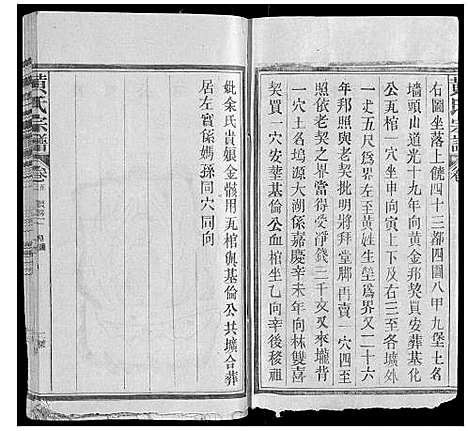 右圖坐落上饒四十三都四圖八甲九堡七名
墻頭山道光十九年向黃金邦契買安葬基化
公瓦棺一穴坐申向寅上下及右三至各壙外
一丈五尺為界左至黃姓生塋為界又二十六
年邦照與老契批明將拜堂脚再賣一穴四至
照依老契之界當得受淨錢二千文又來壠背
一穴土名塢源大湖係嘉慶辛未年向林雙喜
契買一穴安葬基倫公血棺坐乙向辛後稜祖
妣余氏貴娘金骸用瓦棺與基倫公共壙合葬
居左實係媽孫同穴同向
黃氏宗譜
卷